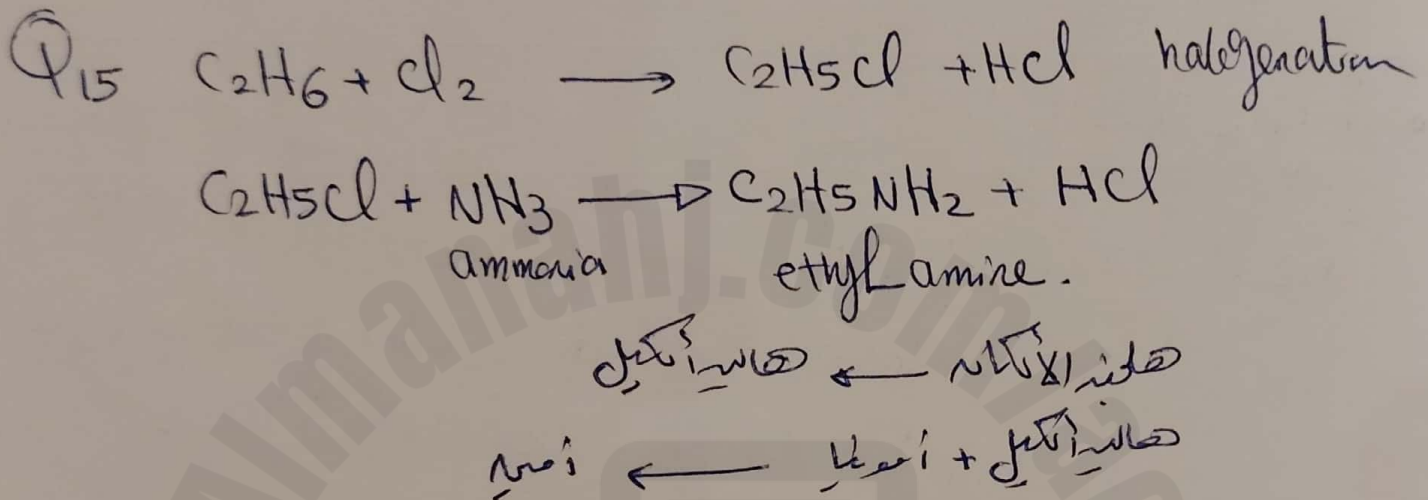 Q15 C2H6 + Cl2 → C2H5Cl + HCl halogenation
C2H5Cl + NH3 → C2H5NH2 + HCl
ammonia ethyl amine.
هلجنة الألكان ← هاليد ألكيل
هاليد ألكيل + أمونيا ← أمين
Almanahj.com/ae